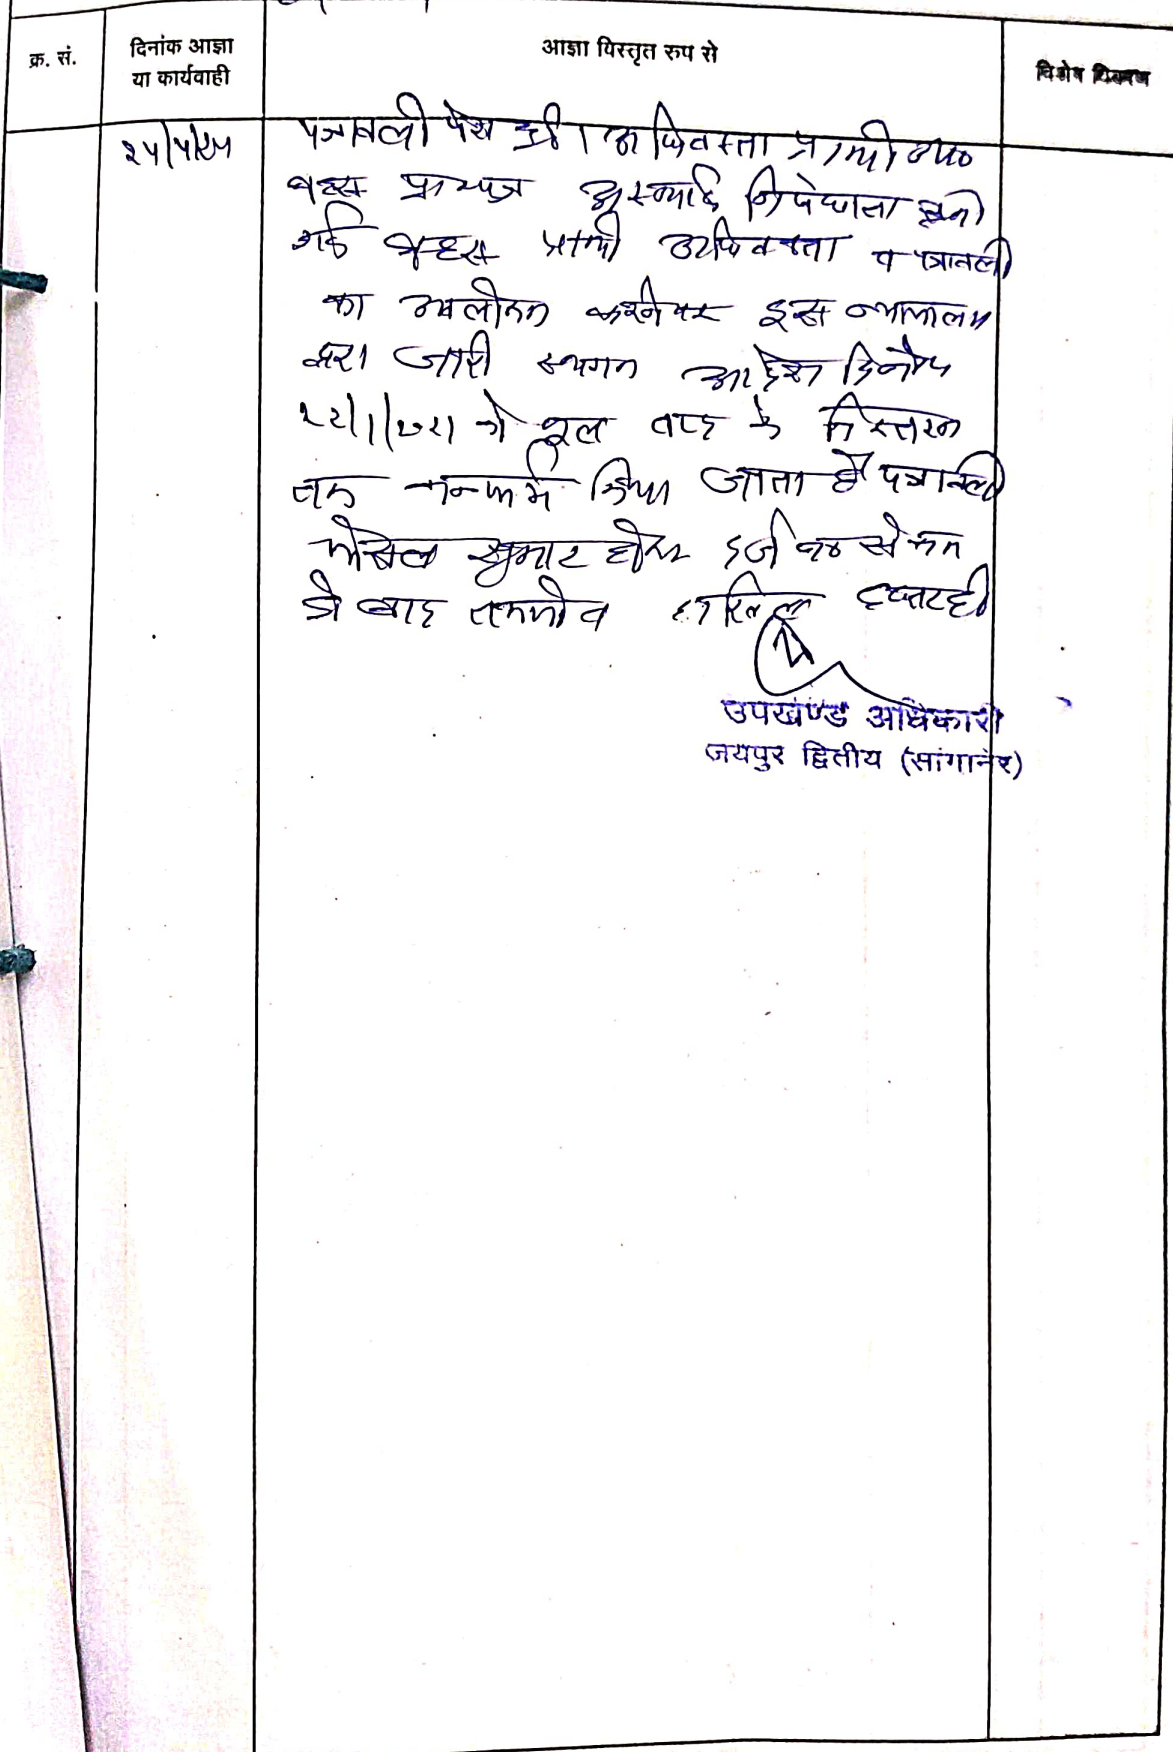 क्र. सं.
दिनांक आज्ञा
या कार्यवाही
आज्ञा विस्तृत रुप से
विशेष विवरण
पत्रावली पेश हुई। अधिवक्ता प्रार्थी उप०
बहस प्रा०पत्र अस्थाई निषेधाज्ञा सुनी
गई बहस प्रार्थी अधिवक्ता व पत्रावली
का अवलोकन करने पर इस न्यायालय
द्वारा जारी स्थगन आदेश दिनांक
को मूल वाद के निस्तारण
तक कन्फर्म किया जाता है पत्रावली
फैसल शुमार होकर दर्ज नम्बर से कम
हो बाद तकमील दाखिल दफ्तर हो
उपखण्ड अधिकारी
जयपुर द्वितीय (सांगानेर)